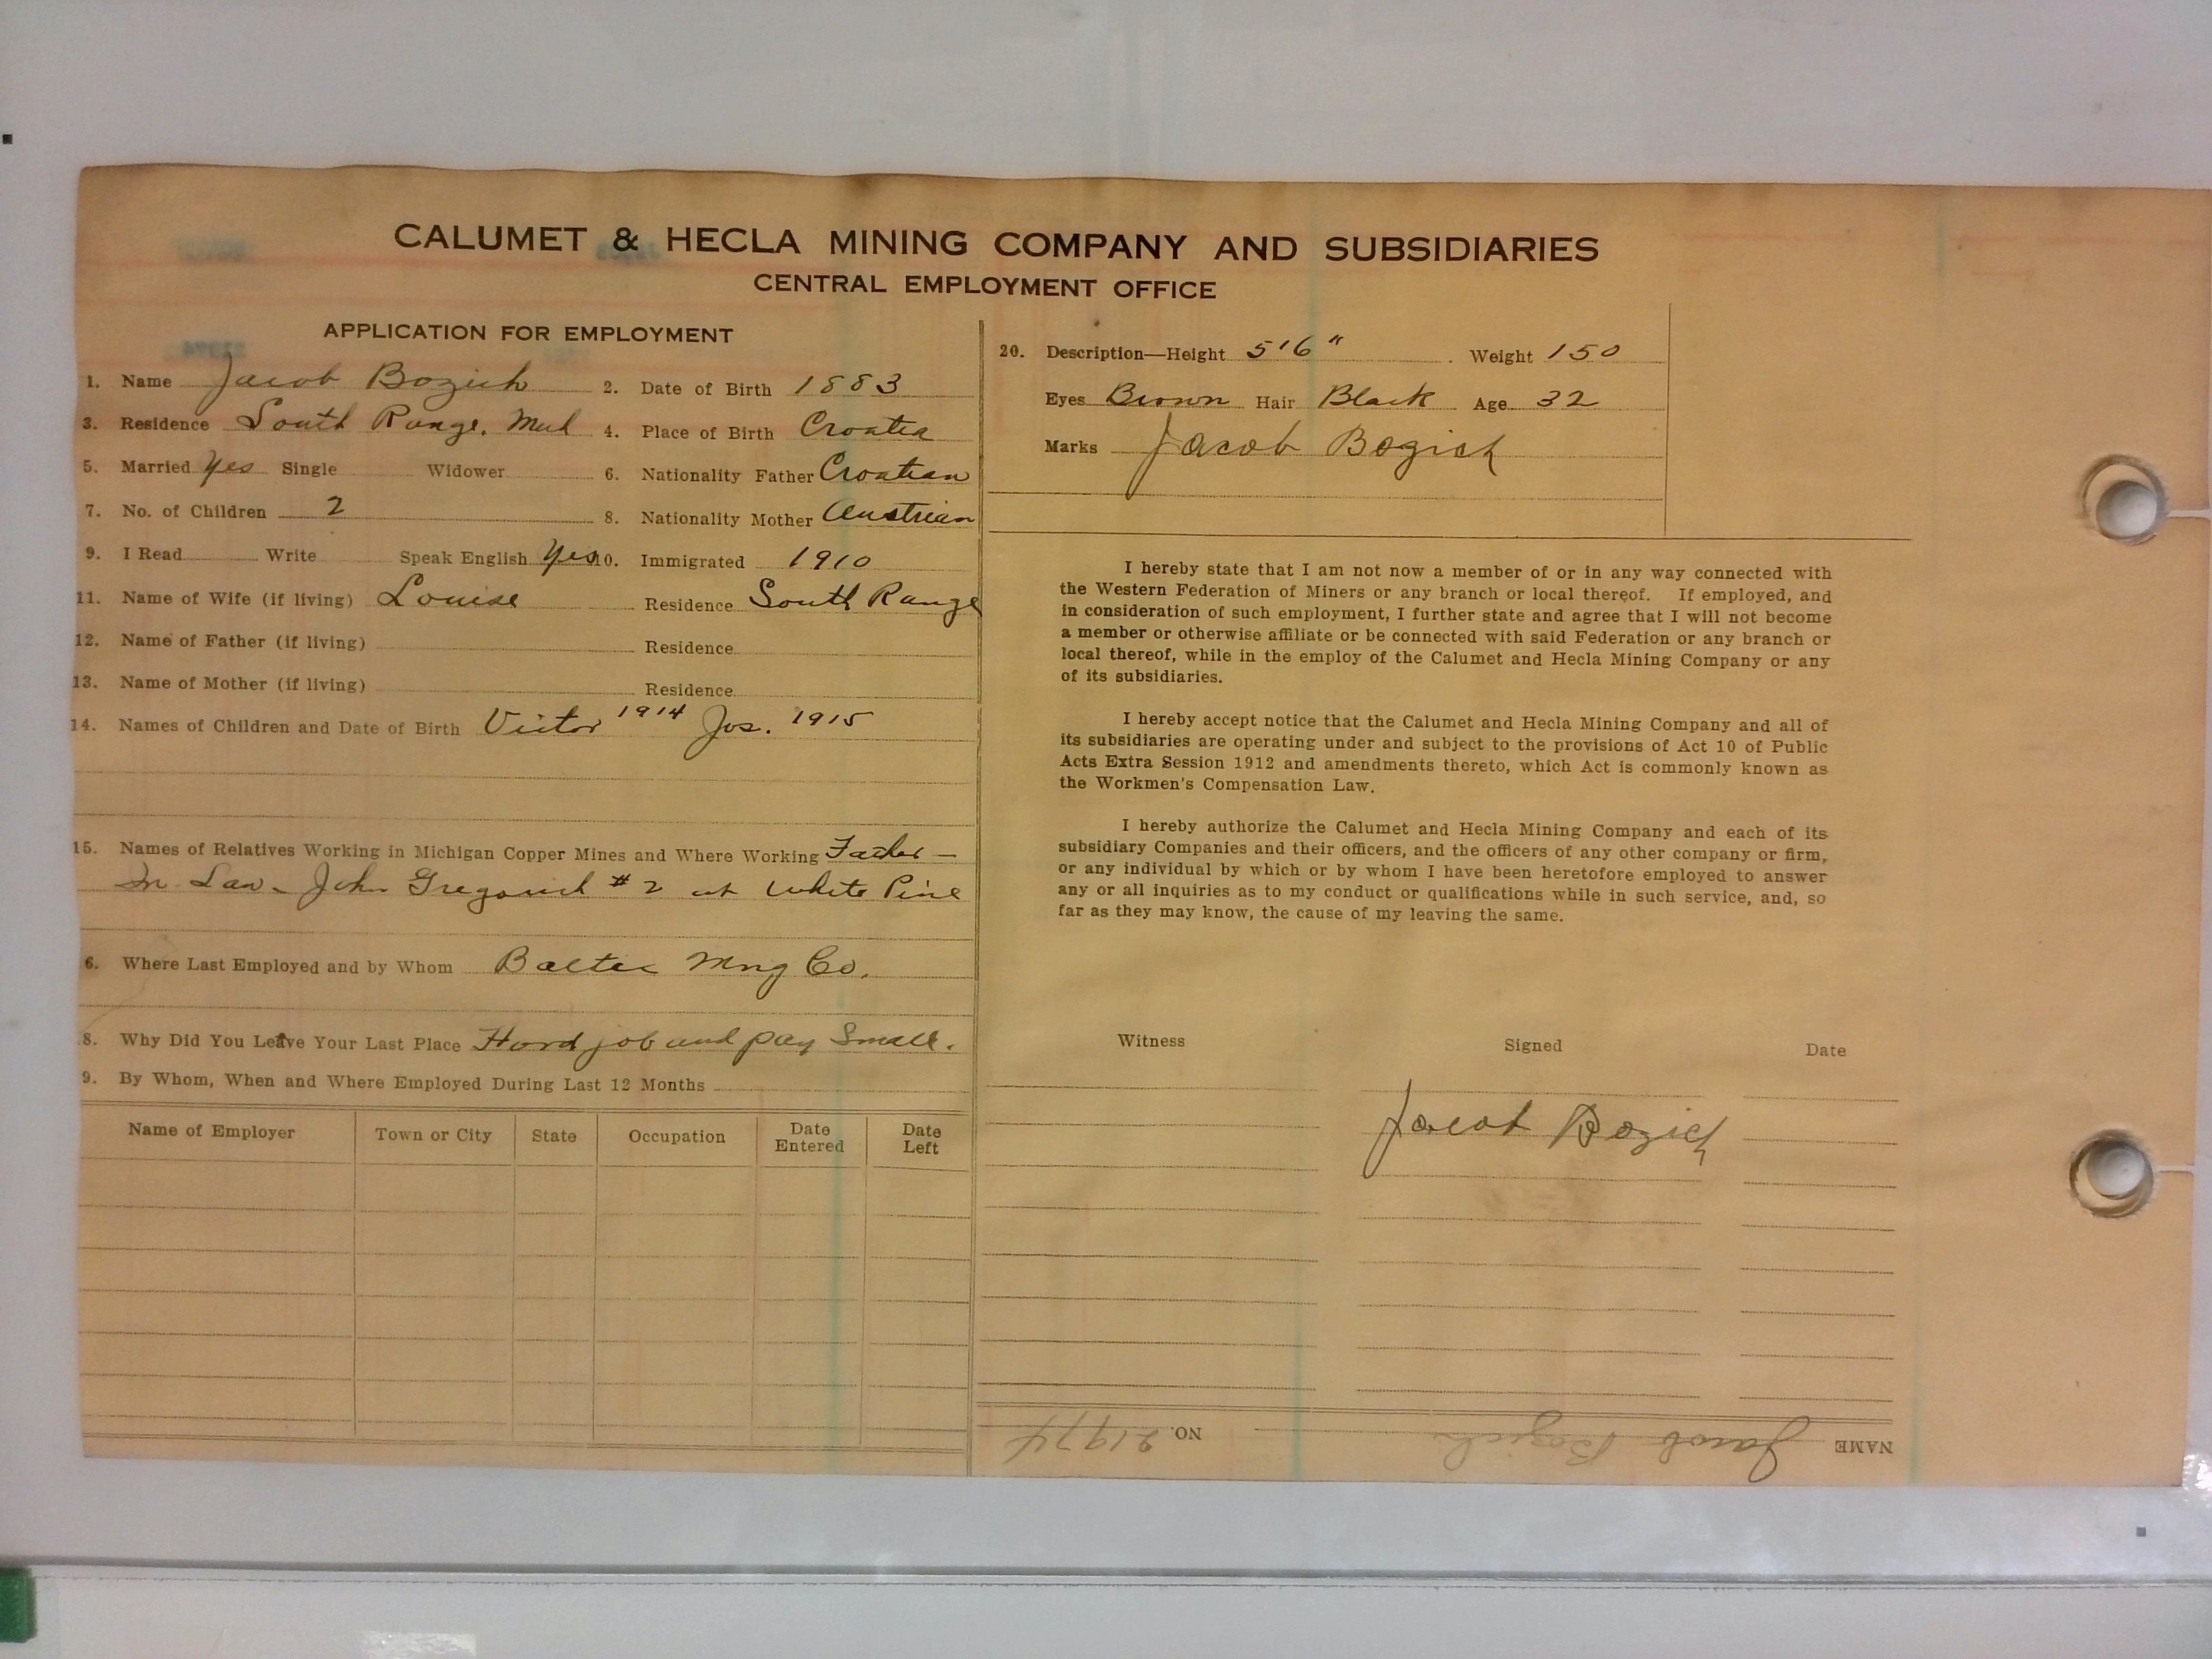 CALUMET & HECLA MINING COMPANY AND SUBSIDIARIES
CENTRAL EMPLOYMENT OFFICE
APPLICATION FOR EMPLOYMENT
1. Name Jacob Bozich 2. Date of Birth 1883
3. Residence South Range, Mich 4. Place of Birth Croatia
5. Married Yes Single Widower 6. Nationality Father Croatian
7. No. of Children 2 8. Nationality Mother Austrian
9. I Read Write Speak English Yes 10. Immigrated 1910
11. Name of Wife (if living) Louise Residence South Range
12. Name of Father (if living) Residence
13. Name of Mother (if living) Residence
14. Names of Children and Date of Birth Victor 1914 Jos. 1915
15. Names of Relatives Working in Michigan Copper Mines and Where Working Father -
In Law - John Gregorich #2 at White Pine
6. Where Last Employed and by Whom Baltic Mng Co.
8. Why Did You Leave Your Last Place Hard job and pay small.
9. By Whom, When and Where Employed During Last 12 Months
Name of Employer Town or City State Occupation Date Entered Date Left
20. Description—Height 5'6" Weight 150
Eyes Brown Hair Black Age 32
Marks Jacob Bozich
I hereby state that I am not now a member of or in any way connected with
the Western Federation of Miners or any branch or local thereof. If employed, and
in consideration of such employment, I further state and agree that I will not become
a member or otherwise affiliate or be connected with said Federation or any branch or
local thereof, while in the employ of the Calumet and Hecla Mining Company or any
of its subsidiaries.
I hereby accept notice that the Calumet and Hecla Mining Company and all of
its subsidiaries are operating under and subject to the provisions of Act 10 of Public
Acts Extra Session 1912 and amendments thereto, which Act is commonly known as
the Workmen's Compensation Law.
I hereby authorize the Calumet and Hecla Mining Company and each of its
subsidiary Companies and their officers, and the officers of any other company or firm,
or any individual by which or by whom I have been heretofore employed to answer
any or all inquiries as to my conduct or qualifications while in such service, and, so
far as they may know, the cause of my leaving the same.
Witness Signed Date
Jacob Bozich
NAME Jacob Bozich NO. 21974